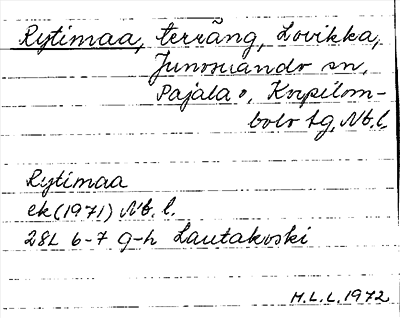 Rytimaa, terräng, Lovikka,
Junosuando sn,
Pajala o, Korpilom-
bolo tg, Nb.l.
Rytimaa
ek (1971) Nb. l.
28L 6-7 g-h Lautakoski
H.L.L. 1972